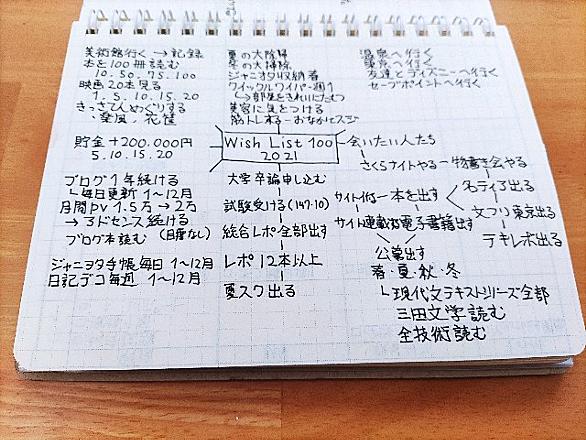 美術館行く→記録
本を100冊読む
10.50.75.100
映画20本見る
1.5.10.15.20
きっさてんめぐりする
貯金+200.000円
5.10.15.20
ブログ1年続ける
毎日更新 1〜12月
月間PV 1.5万→2万
→アドセンス続ける
ブログ本読む(月度なし)
ジャニヲタ手帳毎日 1〜12月
日記デコ毎週 1〜12月
夏の大掃除
冬の大掃除
ジャニオタ収納着
クイックルワイパー週1
↳部屋をきれいにたもつ
美容に気をつける
筋トレする-おなかとスジ
Wish List 100
2021
大学卒論申し込む
試験受ける(1.4.7.10)
総合レポ全部出す
レポ12本以上
夏スク出る
温泉へ行く
東京へ行く
友達とディズニーへ行く
セーブポイントへ行く
会いたい人たち
さくらナイトやる-物書き会やる
名ティア出る
文フリ東京出る
テキレボ出る
サイト付-本を出す
サイト連載電子書籍出す
公募出す
春・夏・秋・冬
現代文テキストシリーズ全部
三田文学読む
全技術読む